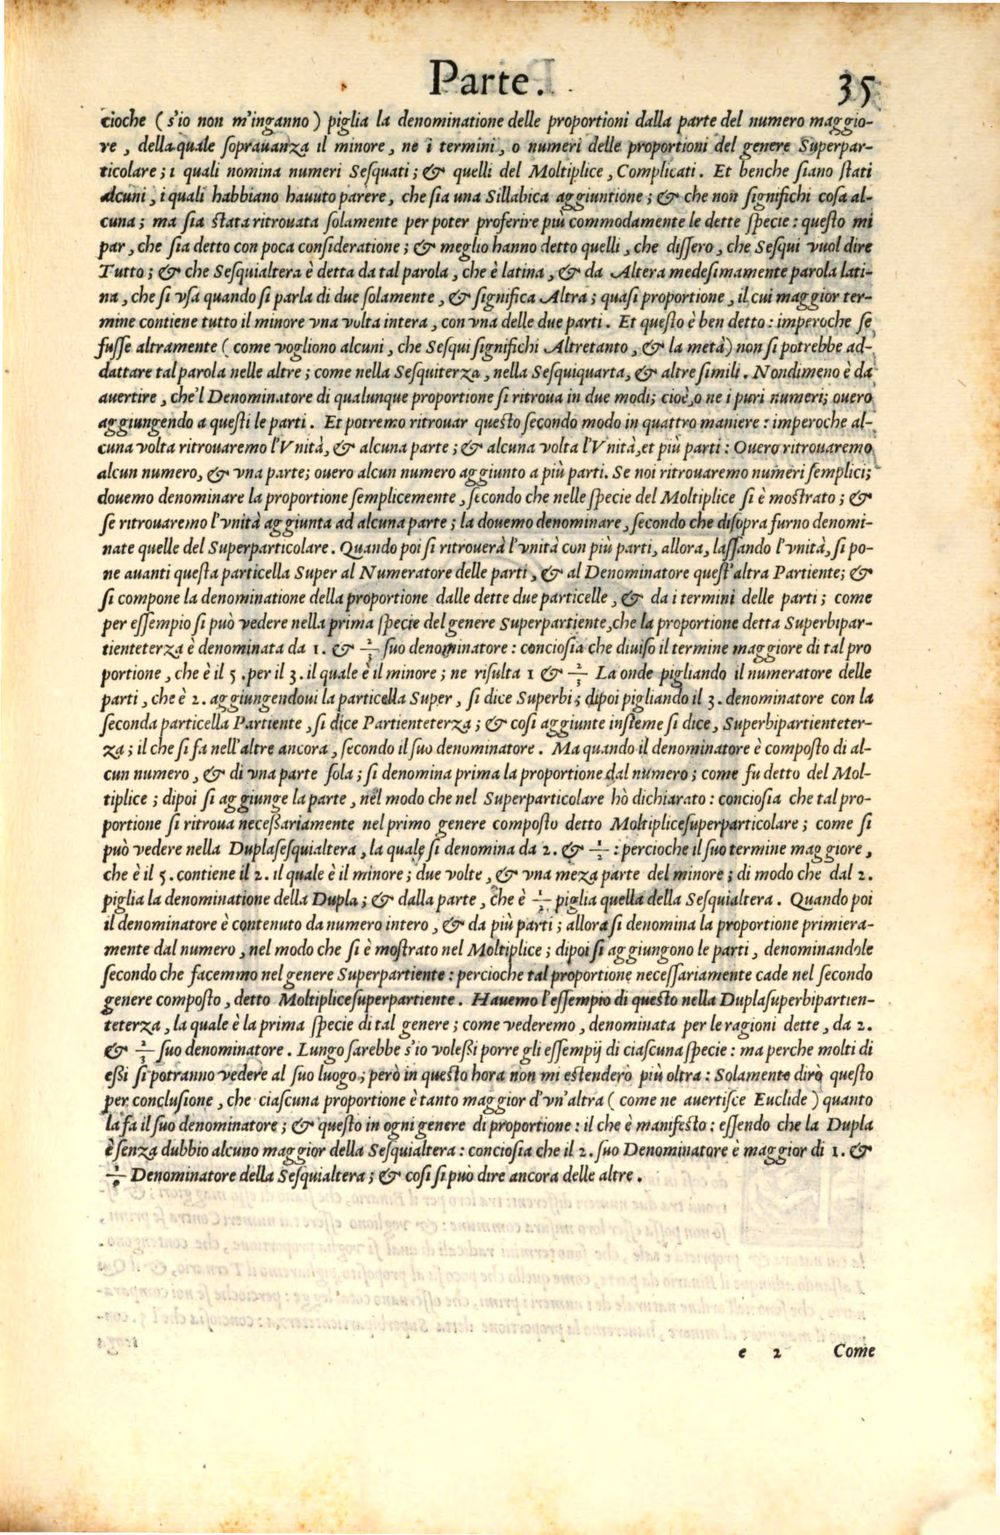 Parte. 35
cioche (s'io non m'inganno) piglia la denominatione delle proportioni dalla parte del numero maggio-
re, della quale soprauanza il minore, ne i termini, o numeri delle proportioni del genere Superpar-
ticolare; i quali nomina numeri Sesquati; & quelli del Moltiplice, Complicati. Et benche siano stati
alcuni, i quali habbiano hauuto parere, che sia una Sillabica aggiuntione; & che non significhi cosa al-
cuna; ma sia stata ritrouata solamente per poter proferire più commodamente le dette specie: questo mi
par, che sia detto con poca consideratione; & meglio hanno detto quelli, che dissero, che Sesqui vuol dire
Tutto; & che Sesquialtera è detta da tal parola, che è latina, & da Altera medesimamente parola lati-
na, che si vsa quando si parla di due solamente, & significa Altra; quasi proportione, il cui maggior ter-
mine contiene tutto il minore vna volta intera, con vna delle due parti. Et questo è ben detto: imperoche se
fusse altramente (come vogliono alcuni, che Sesqui significhi Altretanto, & la metà) non si potrebbe ad-
dattare tal parola nelle altre; come nella Sesquiterza, nella Sesquiquarta, & altre simili. Nondimeno è da
auertire, che'l Denominatore di qualunque proportione si ritroua in due modi; cioè, o ne i puri numeri; ouero
aggiungendo a questi le parti. Et potremo ritrouar questo secondo modo in quattro maniere: imperoche al-
cuna volta ritrouaremo l'Vnità, & alcuna parte; & alcuna volta l'Vnità, et più parti: Ouero ritrouaremo
alcun numero, & vna parte; ouero alcun numero aggiunto a più parti. Se noi ritrouaremo numeri semplici;
douemo denominare la proportione semplicemente, secondo che nelle specie del Moltiplice si è mostrato; &
se ritrouaremo l'vnità aggiunta ad alcuna parte; la douemo denominare, secondo che disopra furno denomi-
nate quelle del Superparticolare. Quando poi si ritrouerà l'vnità con più parti, allora, lassando l'vnità, si po-
ne auanti questa particella Super al Numeratore delle parti, & al Denominatore quest'altra Partiente; &
si compone la denominatione della proportione dalle dette due particelle, & da i termini delle parti; come
per essempio si può vedere nella prima specie del genere Superpartiente, che la proportione detta Superbipar-
tienteterza è denominata da 1. & 2/3 suo denominatore: conciosia che diuiso il termine maggiore di tal pro
portione, che è il 5. per il 3. il quale è il minore; ne risulta 1 & 2/3 La onde pigliando il numeratore delle
parti, che è 2. aggiungendoui la particella Super, si dice Superbi; dipoi pigliando il 3. denominatore con la
seconda particella Partiente, si dice Partienteterza; & cosi aggiunte insieme si dice, Superbipartienteter-
za; il che si fa nell'altre ancora, secondo il suo denominatore. Ma quando il denominatore è composto di al-
cun numero, & di vna parte sola; si denomina prima la proportione dal numero; come fu detto del Mol-
tiplice; dipoi si aggiunge la parte, nel modo che nel Superparticolare hò dichiarato: conciosia che tal pro-
portione si ritroua necessariamente nel primo genere composto detto Moltiplicesuperparticolare; come si
può vedere nella Duplasesquialtera, la quale si denomina da 2. & 1/2: percioche il suo termine maggiore,
che è il 5. contiene il 2. il quale è il minore; due volte, & vna meza parte del minore; di modo che dal 2.
piglia la denominatione della Dupla; & dalla parte, che è 1/2 piglia quella della Sesquialtera. Quando poi
il denominatore è contenuto da numero intero, & da più parti; allora si denomina la proportione primiera-
mente dal numero, nel modo che si è mostrato nel Moltiplice; dipoi si aggiungono le parti, denominandole
secondo che facemmo nel genere Superpartiente: percioche tal proportione necessariamente cade nel secondo
genere composto, detto Moltiplicesuperpartiente. Hauemo l'essempio di questo nella Duplasuperbipartien-
teterza, la quale è la prima specie di tal genere; come vederemo, denominata per le ragioni dette, da 2.
& 2/3 suo denominatore. Lungo sarebbe s'io volessi porre gli essempij di ciascuna specie: ma perche molti di
essi si potranno vedere al suo luogo; però in questo hora non mi estenderò più oltra: Solamente dirò questo
per conclusione, che ciascuna proportione è tanto maggior d'vn'altra (come ne auertisce Euclide) quanto
la fa il suo denominatore; & questo in ogni genere di proportione: il che è manifesto: essendo che la Dupla
è senza dubbio alcuno maggior della Sesquialtera: conciosia che il 2. suo Denominatore è maggior di 1. &
1/2 Denominatore della Sesquialtera; & cosi si può dire ancora delle altre.
e 2 Come